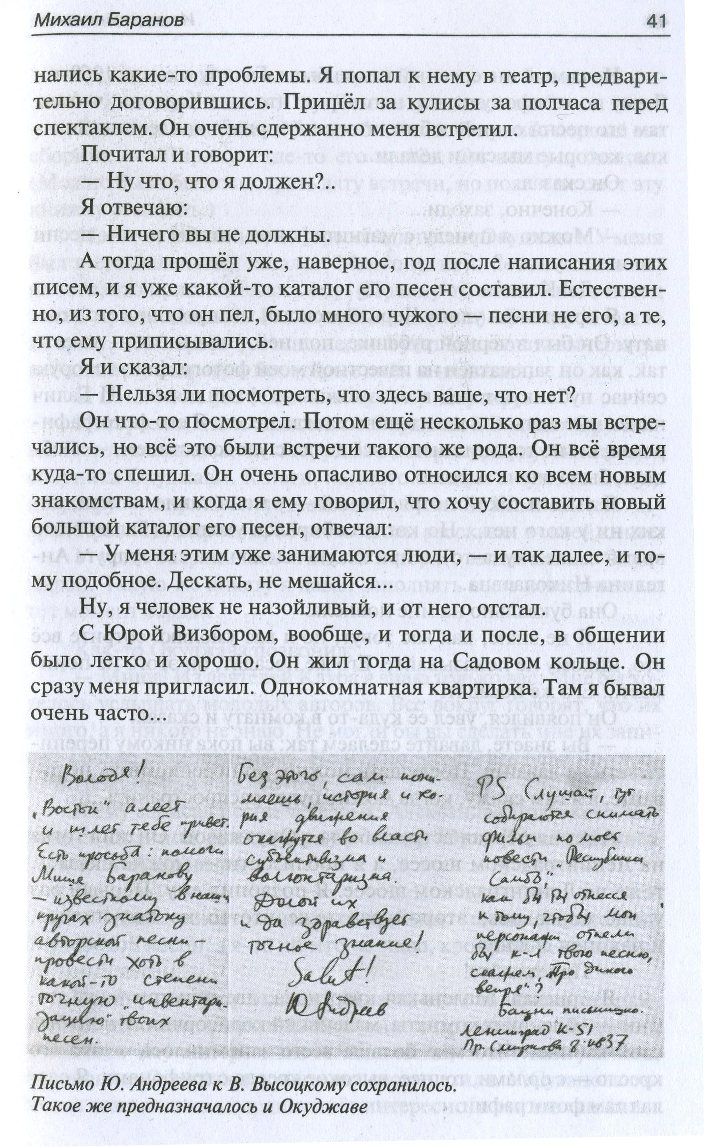 Михаил Баранов 41
нались какие-то проблемы. Я попал к нему в театр, предвари-
тельно договорившись. Пришёл за кулисы за полчаса перед
спектаклем. Он очень сдержанно меня встретил.
Почитал и говорит:
— Ну что, что я должен?..
Я отвечаю:
— Ничего вы не должны.
А тогда прошёл уже, наверное, год после написания этих
писем, и я уже какой-то каталог его песен составил. Естествен-
но, из того, что он пел, было много чужого — песни не его, а те,
что ему приписывались.
Я и сказал:
— Нельзя ли посмотреть, что здесь ваше, что нет?
Он что-то посмотрел. Потом ещё несколько раз мы встре-
чались, но всё это были встречи такого же рода. Он всё время
куда-то спешил. Он очень опасливо относился ко всем новым
знакомствам, и когда я ему говорил, что хочу составить новый
большой каталог его песен, отвечал:
— У меня этим уже занимаются люди, — и так далее, и то-
му подобное. Дескать, не мешайся...
Ну, я человек не назойливый, и от него отстал.
С Юрой Визбором, вообще, и тогда и после, в общении
было легко и хорошо. Он жил тогда на Садовом кольце. Он
сразу меня пригласил. Однокомнатная квартирка. Там я бывал
очень часто...
Володя!
„Восток" алеет
и шлет тебе привет.
Есть просьба помочь
Мише Баранову
— известному в наших
кругах знатоку
авторской песни
провести хоть в
какой-то степени
точную "инвентари-
зацию" твоих
песен.
Без этого, сам пони-
маешь, история и тео-
рия движения
окажутся во власти
субъективизма и
волюнтаризма.
Долой их
и да здравствует
точное знание!
Salut!
Ю Андреев
PS (Слушай, тут
собираются снимать
фильм по моей
повести "Республика
Самбо"
как бы ты отнесся
к тому, чтобы мои
персонажи отпели
бы к-л твою песню,
скажем, "Про дикого
вепря"?
Ленинград К-51
Пр. Смирнова 8
Письмо Ю. Андреева к В. Высоцкому сохранилось.
Такое же предназначалось и Окуджаве